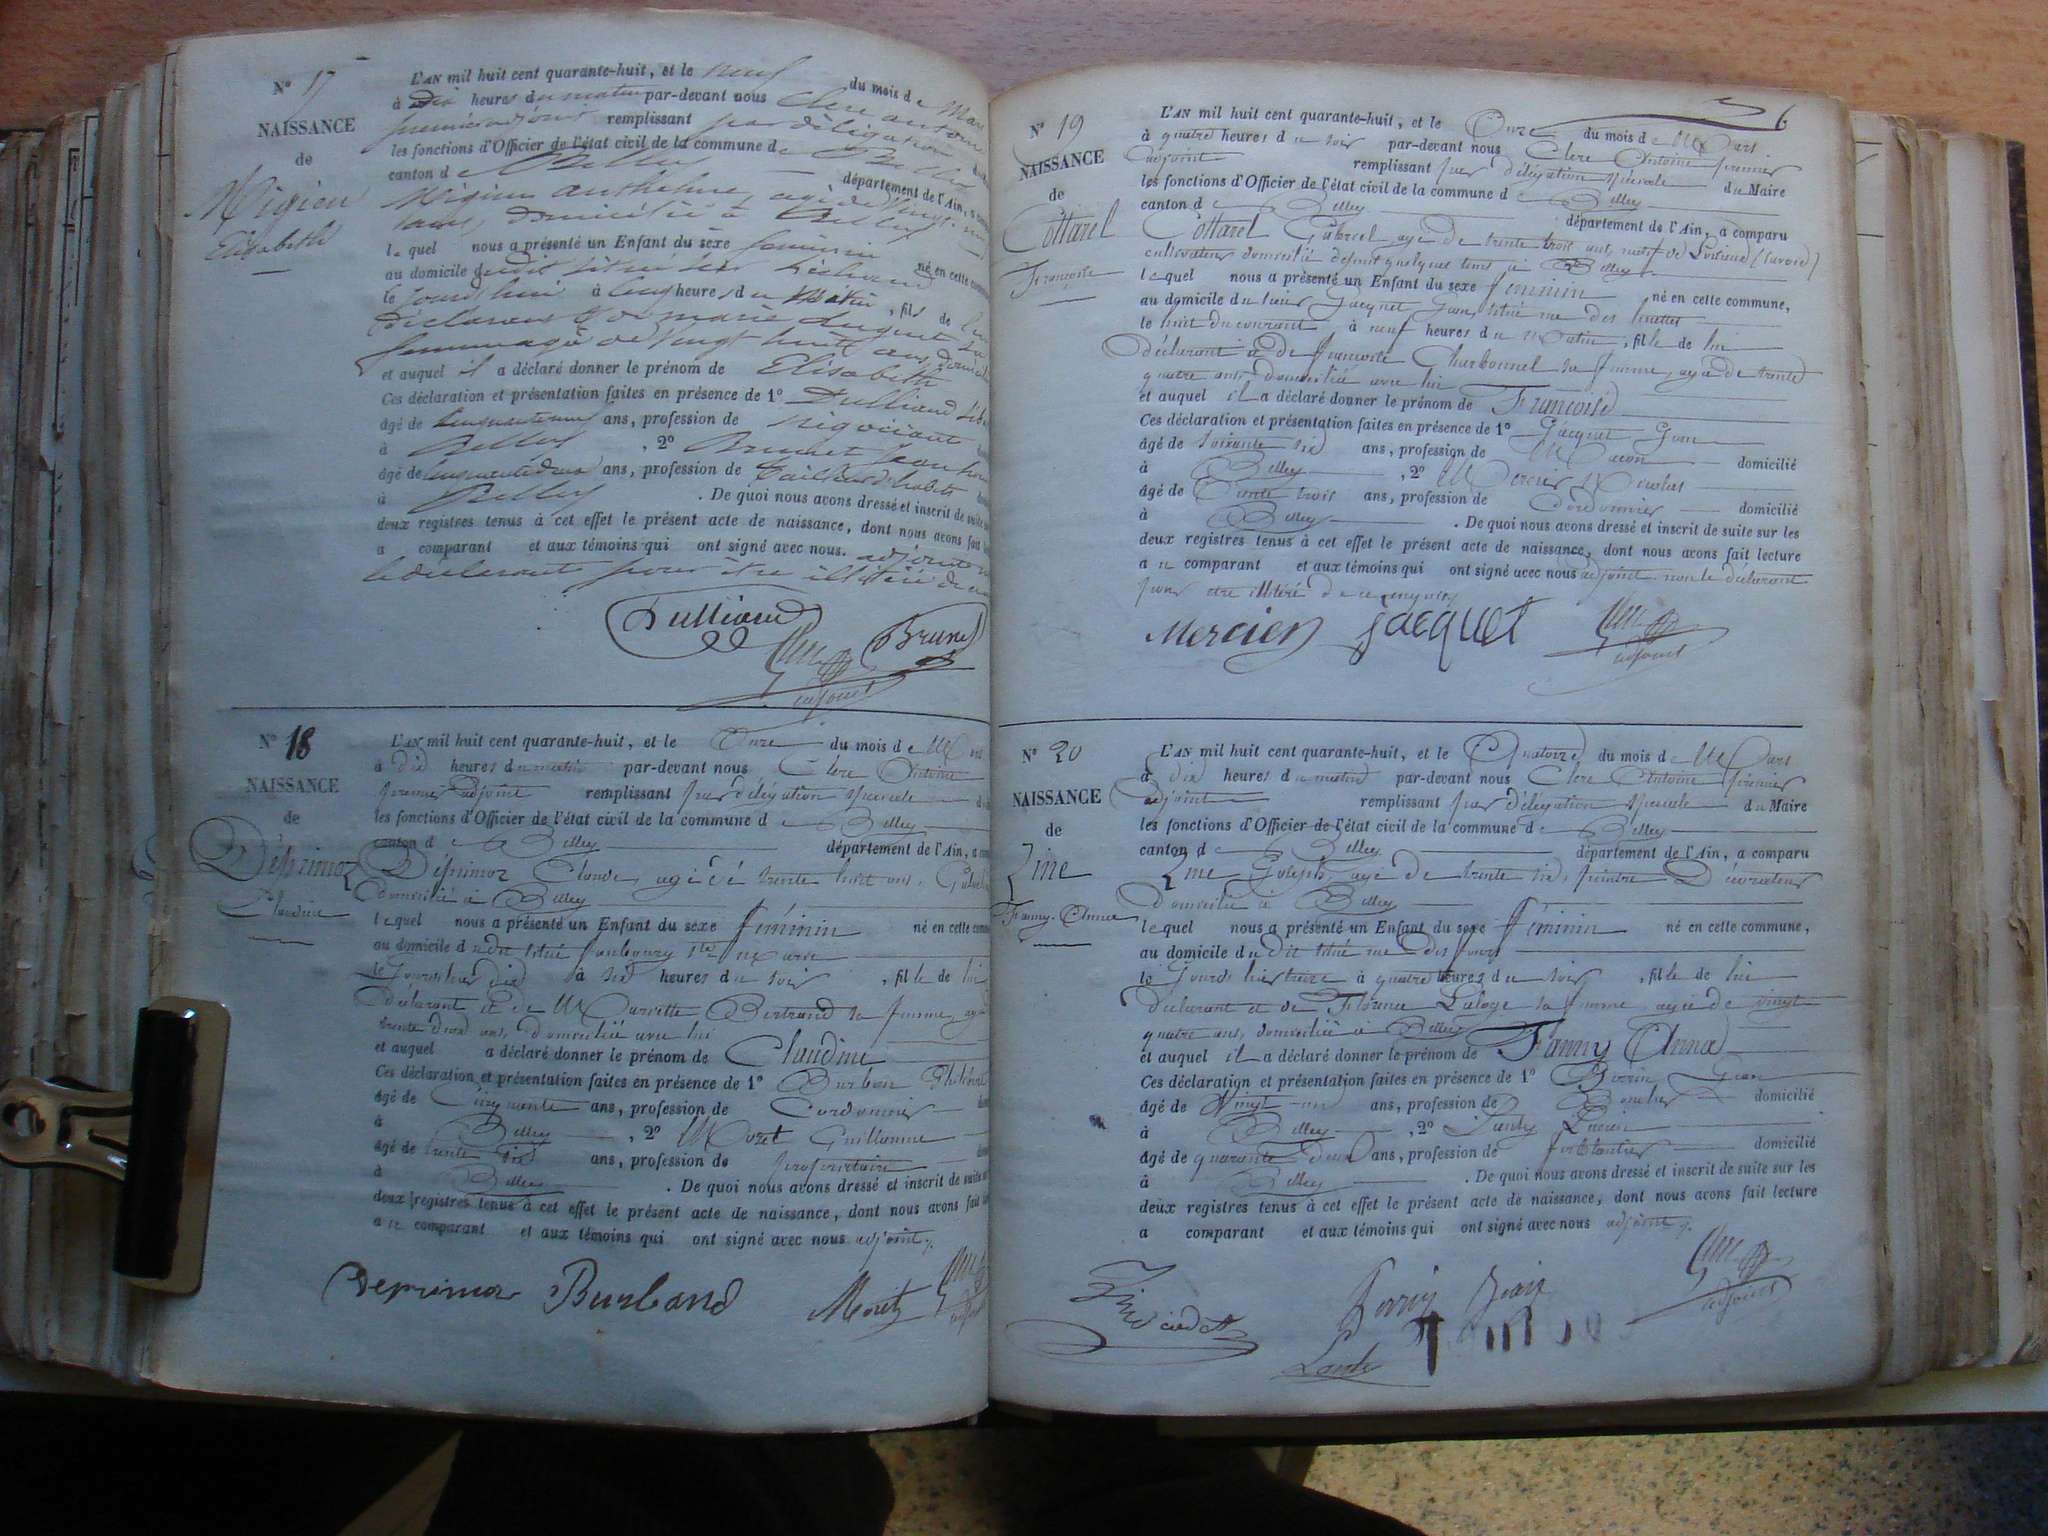 N° 17
NAISSANCE
de
Migieu
Elisabeth
L'AN mil huit cent quarante-huit, et le neuf du mois de Mars
à dix heures du matin par-devant nous Clerc antoine
premier adjoint remplissant par délégation
les fonctions d'Officier de l'état civil de la commune de Belley
canton de Belley département de l'Ain, a
Migieu anthelme, agé de vingt neuf
ans, domicilié à Belley
lequel nous a présenté un Enfant du sexe féminin né en cette
au domicile dudit situé
le jourd'hui à cinq heures du matin, fils de lui
déclarant & de marie Auguet sa
femme agée de vingt huit ans,
et auquel il a déclaré donner le prénom de Elisabeth
Ces déclaration et présentation faites en présence de 1° Dulliand
âgé de cinquante neuf ans, profession de négociant
à Belley, 2° Brunet jean
âgé de cinquante deux ans, profession de tailleur d'habits
à Belley. De quoi nous avons dressé et inscrit de suite
deux registres tenus à cet effet le présent acte de naissance, dont nous avons fait
a comparant et aux témoins qui ont signé avec nous. adjoint
le déclarant pour être illitéré de ce
Dulliand
Clerc
Brunet
adjoint
N° 18
NAISSANCE
de
Déprimoz
Claudine
L'AN mil huit cent quarante-huit, et le Onze du mois de Mars
à dix heures du matin par-devant nous Clerc Antoine
premier adjoint remplissant par délégation spéciale
les fonctions d'Officier de l'état civil de la commune de Belley
canton de Belley département de l'Ain, a
Déprimoz Claude, agé de trente huit ans,
domicilié à Belley
lequel nous a présenté un Enfant du sexe féminin né en cette
au domicile dudit situé faubourg
le jour d'hier dix à six heures du soir, fille de lui
déclarant et de Mariette Bertrand sa femme, agée
trente deux ans, domiciliée avec lui
et auquel a déclaré donner le prénom de Claudine
Ces déclaration et présentation faites en présence de 1° Burban Philibert
âgé de Cinquante ans, profession de Cordonnier
à Belley, 2° Moret Guillaume
âgé de trente six ans, profession de propriétaire
à Belley. De quoi nous avons dressé et inscrit de suite
deux registres tenus à cet effet le présent acte de naissance, dont nous avons fait
au comparant et aux témoins qui ont signé avec nous adjoint
deprimoz Burband Moret Clerc
6
N° 19
NAISSANCE
de
Cottarel
Françoise
L'AN mil huit cent quarante-huit, et le Onze du mois de Mars
à quatre heures du soir par-devant nous Clerc Antoine premier
adjoint remplissant par délégation spéciale du Maire
les fonctions d'Officier de l'état civil de la commune de Belley
canton de Belley département de l'Ain, a comparu
Cottarel Gabriel agé de trente trois ans, natif de Loisieux (Savoie)
cultivateur domicilié depuis quelque tems à Belley
lequel nous a présenté un Enfant du sexe féminin né en cette commune,
au domicile du sieur Jacquet Jean, situé rue des
le huit du courant à neuf heures du matin, fille de lui
déclarant et de françoise Charbonnel sa femme, agée de trente
quatre ans, domiciliée avec lui
et auquel il a déclaré donner le prénom de Françoise
Ces déclaration et présentation faites en présence de 1° Jacquet Jean
âgé de soixante six ans, profession de Maçon domicilié
à Belley, 2° Mercier Nicolas
âgé de trente trois ans, profession de Cordonnier domicilié
à Belley. De quoi nous avons dressé et inscrit de suite sur les
deux registres tenus à cet effet le présent acte de naissance, dont nous avons fait lecture
au comparant et aux témoins qui ont signé avec nous adjoint non le déclarant
pour être illitéré de ce enquis
Mercier jacquet Clerc
adjoint
N° 20
NAISSANCE
de
Zine
Fanny-Anna
L'AN mil huit cent quarante-huit, et le Quatorze du mois de Mars
à dix heures du matin par-devant nous Clerc Antoine premier
adjoint remplissant par délégation spéciale du Maire
les fonctions d'Officier de l'état civil de la commune de Belley
canton de Belley département de l'Ain, a comparu
Zine Joseph, agé de trente six, peintre Décorateur
domicilié à Belley
lequel nous a présenté un Enfant du sexe féminin né en cette commune,
au domicile dudit situé rue des fours
le jour d'hier treize à quatre heures du soir, fille de lui
déclarant et de Florence Laloge sa femme, agée de vingt
quatre ans, domiciliée à Belley
et auquel il a déclaré donner le prénom de Fanny Anna
Ces déclaration et présentation faites en présence de 1° Perrin Jean
âgé de Vingt un ans, profession de Boucher domicilié
à Belley, 2° Lardy Lucien
âgé de quarante deux ans, profession de ferblantier domicilié
à Belley. De quoi nous avons dressé et inscrit de suite sur les
deux registres tenus à cet effet le présent acte de naissance, dont nous avons fait lecture
a comparant et aux témoins qui ont signé avec nous adjoint
Clerc
adjoint
Perrin Jean